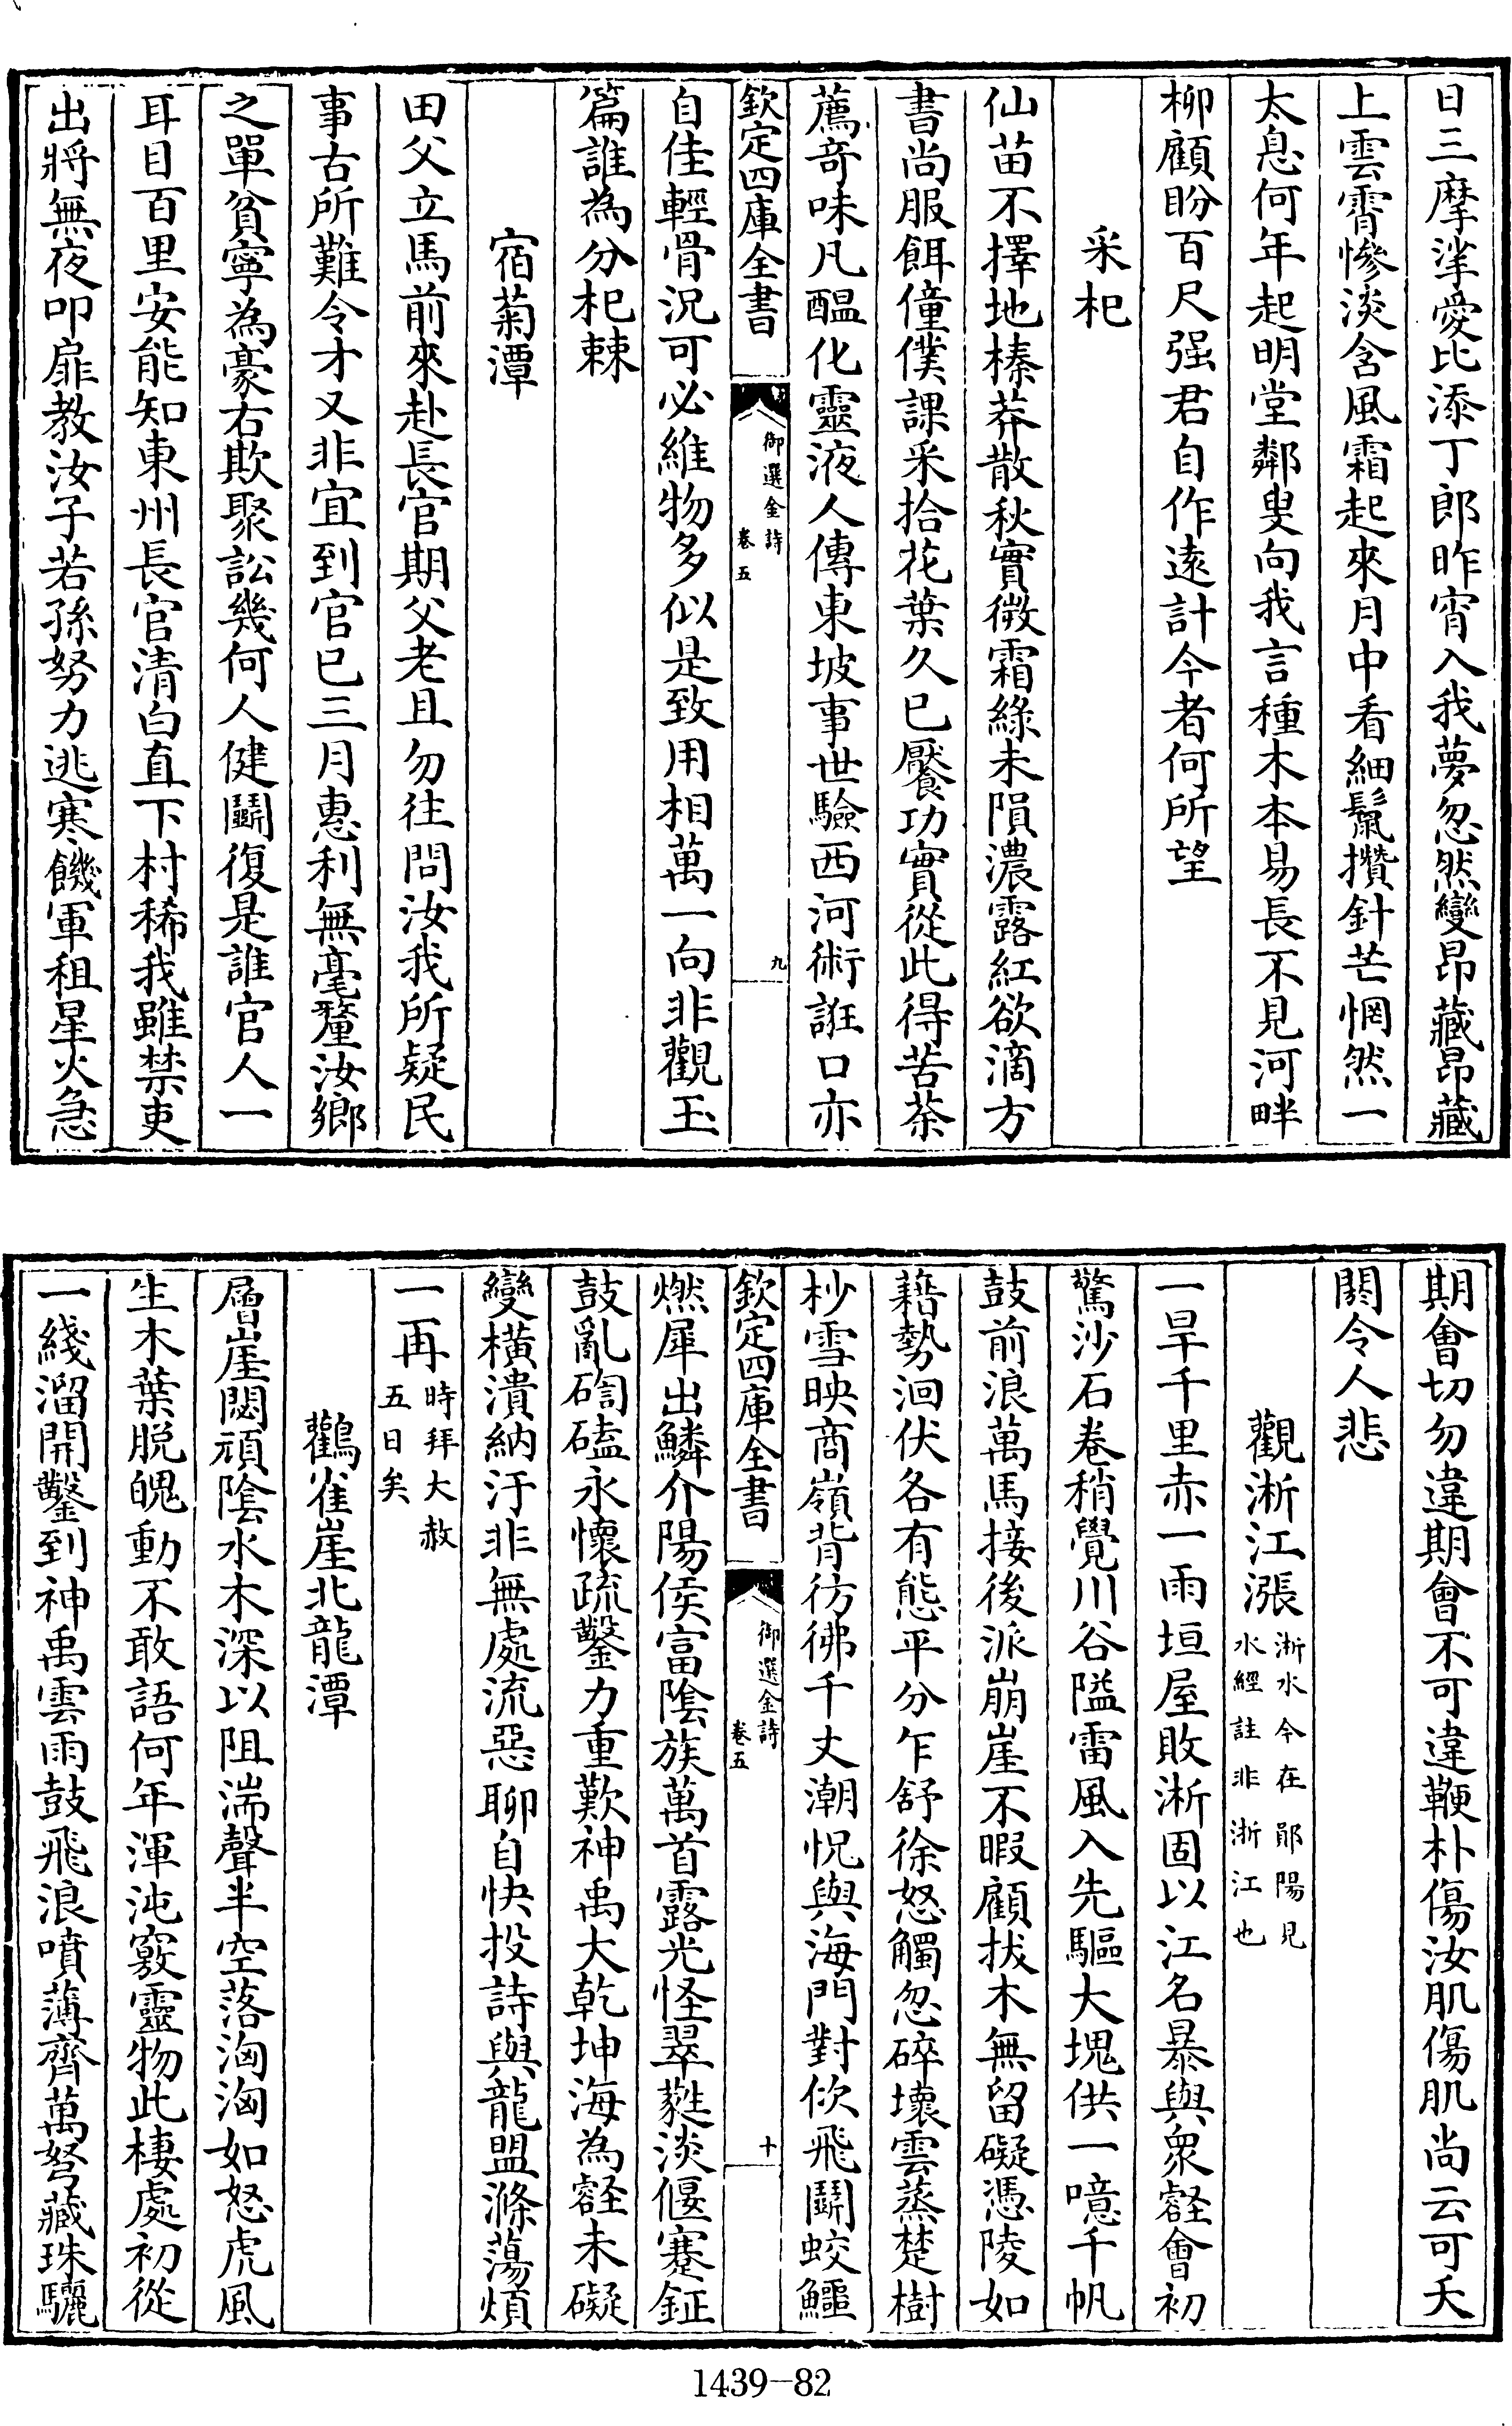 日三摩挲愛比添丁郎昨宵入我夢忽然變昂藏昂藏
上雲霄慘淡含風霜起來月中看細鬣攢針芒惘然一
太息何年起明堂鄰叟向我言種木本易長不見河畔
柳顧盼百尺强君自作遠計今者何所望
采杞
仙苗不擇地榛莽散秋實微霜綠未隕濃露紅欲滴方
書尚服餌僮僕課采拾花葉久已饜功實從此得苦荼
薦奇味凡醖化靈液人傳東坡事世驗西河術誑口亦
欽定四庫全書
御選金詩
卷五
九
自佳輕骨況可必維物多似是致用相萬一向非觀玉
篇誰為分杞棘
宿菊潭
田父立馬前來赴長官期父老且勿往問汝我所疑民
事古所難令才又非宜到官已三月惠利無毫釐汝鄉
之單貧寧為豪右欺聚訟幾何人健鬬復是誰官人一
耳目百里安能知東州長官清白直下村稀我雖禁吏
出將無夜叩扉教汝子若孫努力逃寒饑軍租星火急
期會切勿違期會不可違鞭朴傷汝肌傷肌尚云可夭
閼令人悲
觀淅江漲
淅水今在鄖陽見
水經註非浙江也
一旱千里赤一雨垣屋敗淅固以江名暴與衆壑會初
驚沙石卷稍覺川谷隘雷風入先驅大塊供一噫千帆
鼓前浪萬馬接後派崩崖不暇顧拔木無留礙憑陵如
藉勢洄伏各有態平分乍舒徐怒觸忽碎壞雲蒸楚樹
杪雪映商嶺背彷彿千丈潮怳與海門對佽飛鬬蛟鱷
欽定四庫全書
御選金詩
卷五
十
燃犀出鱗介陽侯富陰族萬首露光怪翠蕤淡偃蹇鉦
鼓亂磤磕永懷疏鑿力重歎神禹大乾坤海為壑未礙
變橫潰納汙非無處流惡聊自快投詩與龍盟滌蕩煩
一再
時拜大赦
五日矣
鸛雀崖北龍潭
層崖閟頑陰水木深以阻湍聲半空落洶洶如怒虎風
生木葉脱魄動不敢語何年渾沌竅靈物此棲處初從
一綫溜開鑿到神禹雲雨鼓飛浪噴薄齊萬弩藏珠驪
1439-82